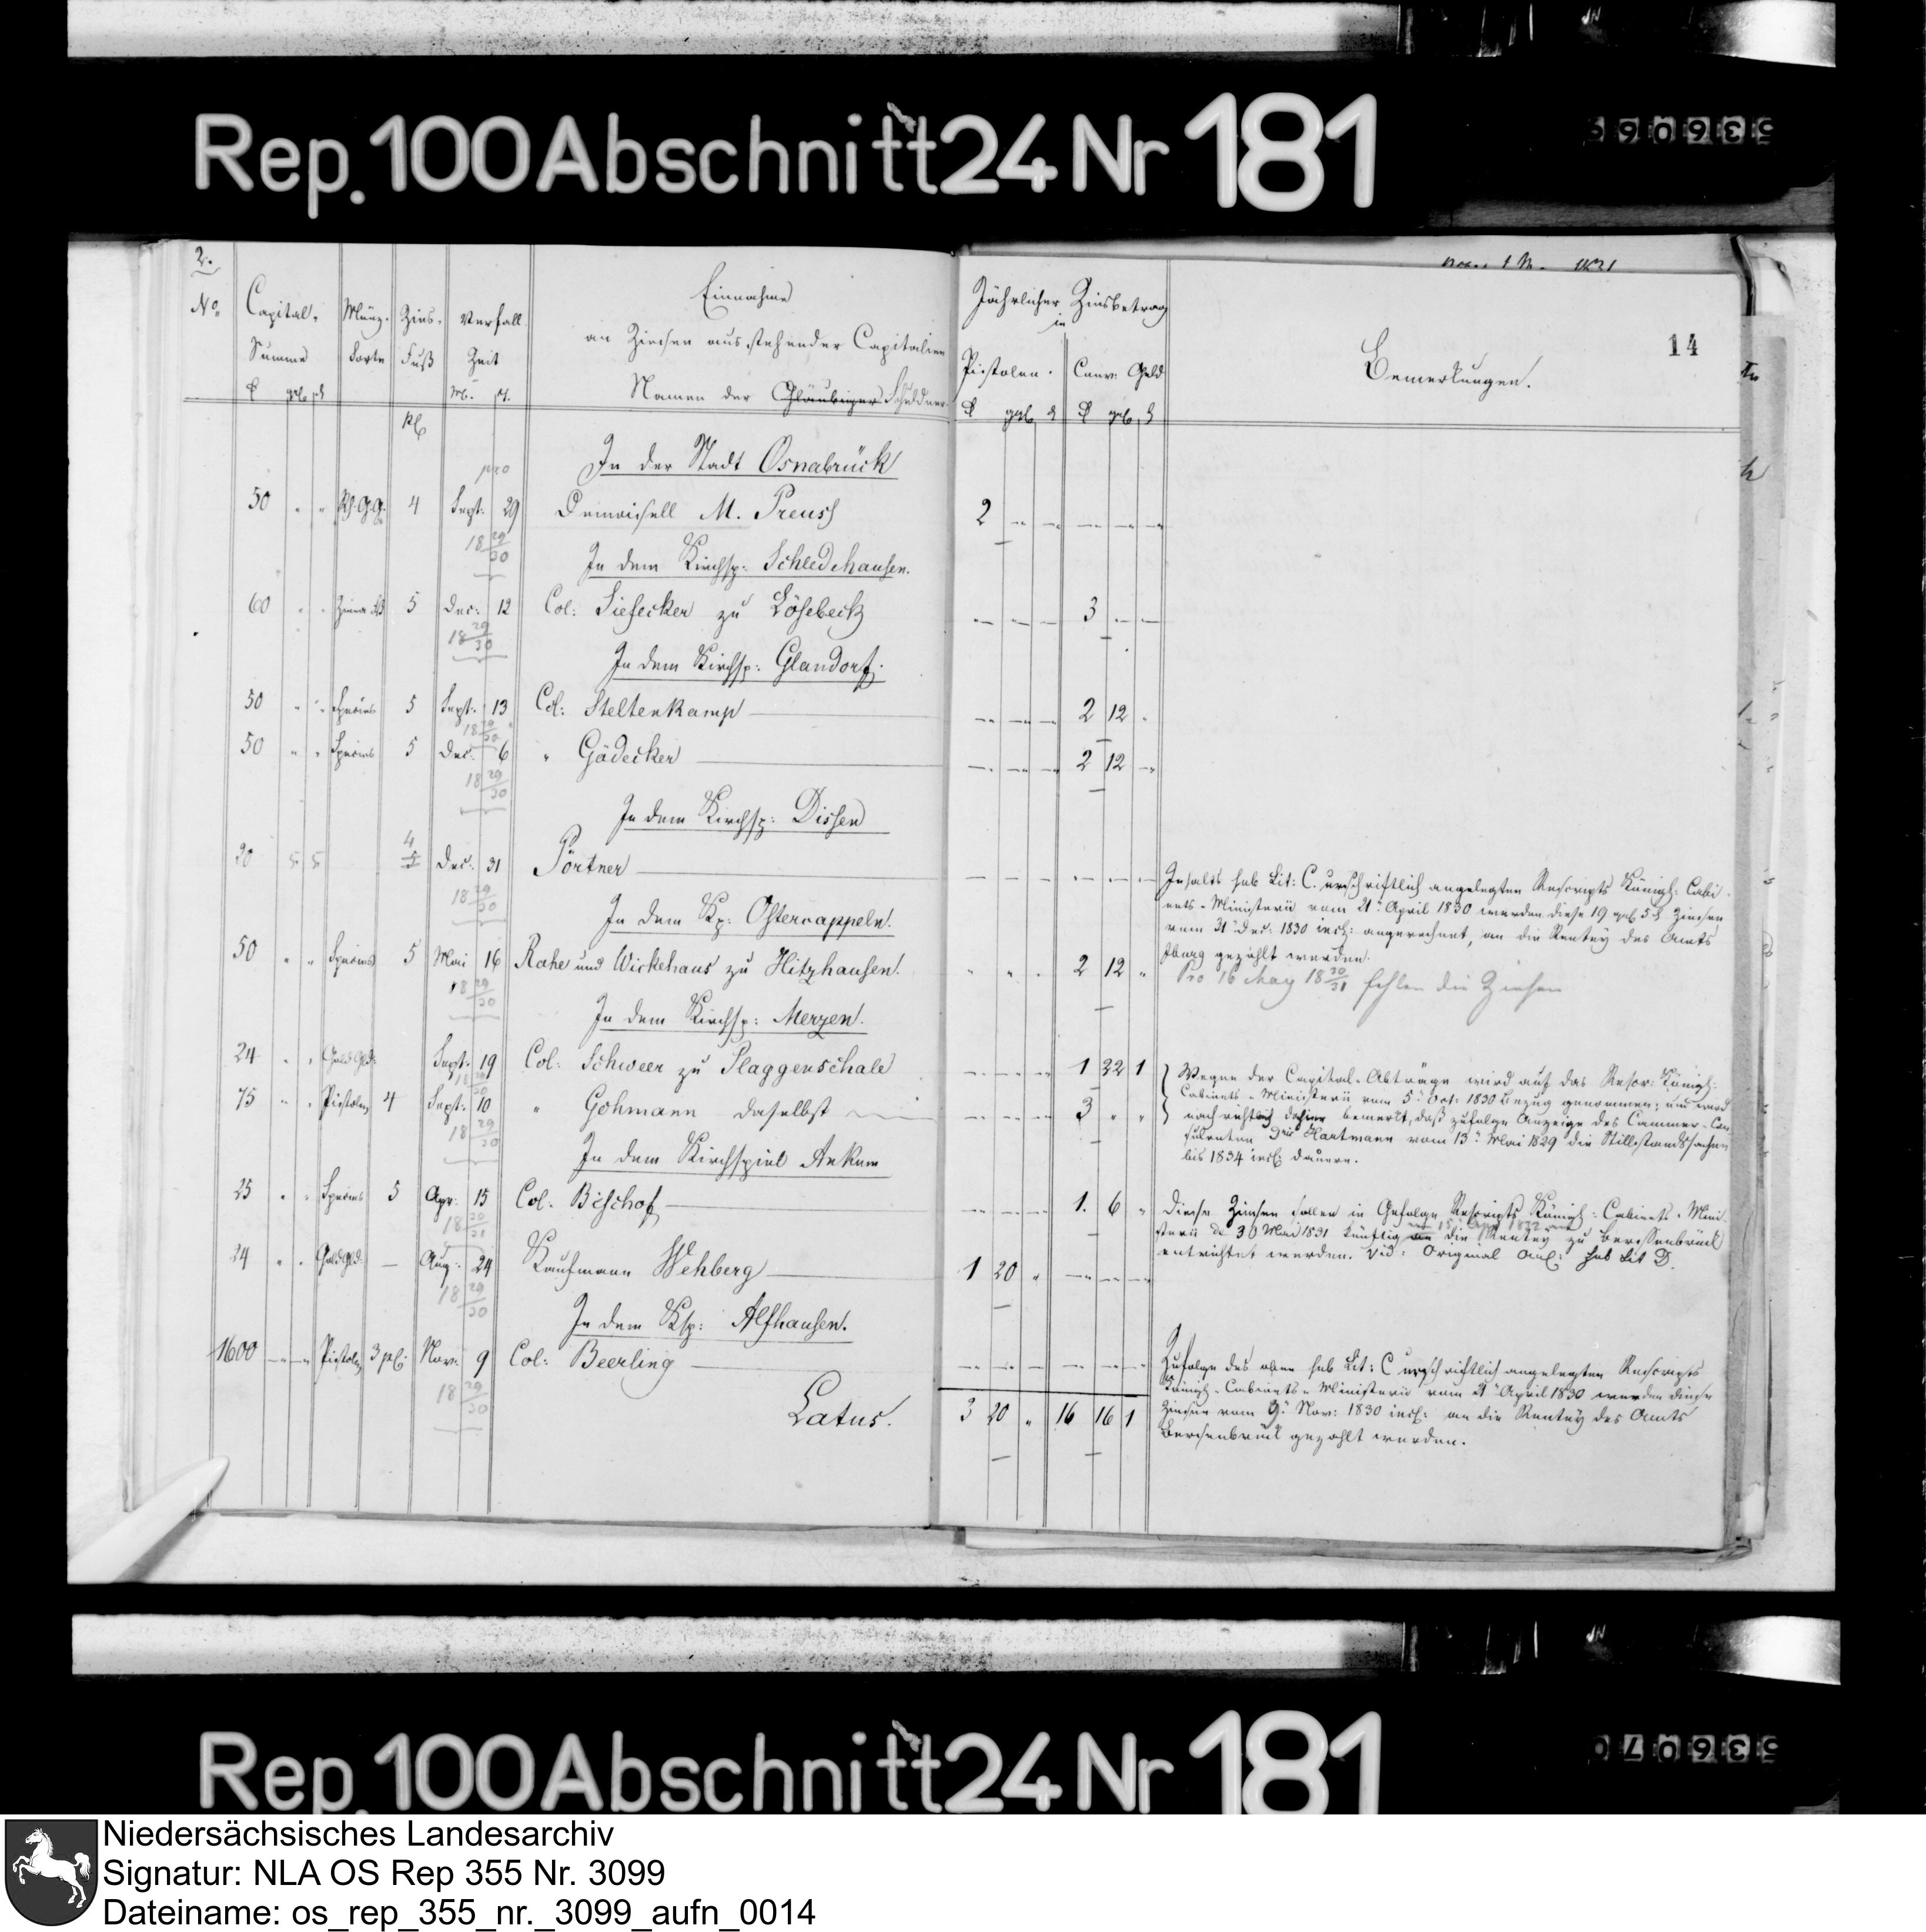 Rep. 100 Abschnitt 24 Nr 181
536069
2.
14
No. Capital- Münz- Zins- Verfall Einnahme Jährlicher Zinsbetrag
Summe Sorte Fuß Zeit an Zinsen ausstehender Capitalien in
Namen der Gläubiger Schuldner Pistolen. Conv: Geld Bemerkungen.
M. T.
pro
In der Stadt Osnabrück
50 " " 4 Sept: 29 Demoisell M. Preuss 2
18 29/30
In dem Kirchsp: Schledehausen.
60 " " 5 Dec: 12 Col: Siefecker zu Lösebeck 3
18 29/30
In dem Kirchsp: Glandorf.
50 " " Specíes 5 Sept: 13 Col: Steltenkamp 2 12 "
18 29/30
50 " " Species 5 Dec: 6 " Gödecker 2 12 "
18 29/30
In dem Kirchsp: Dissen
5 5 4 5 Dec: 31 Pörtner
18 29/30
Inhalts sub Lit: C. urschriftlich angelegten Rescripts Königl: Cabi-
nets-Ministerii vom 21n April 1830 werden diese 19 ggl 5 d Zinsen
vom 31n Dec: 1830 incl: angerechnet, an die Rentey des Amts
Iburg gezahlt werden.
In dem Kp: Ostercappeln.
50 " " Species 5 Mai 16 Rahe und Wickehaus zu Hitzhausen. " " " 2 12 "
18 29/30
Pro 16 May 18 30/31 fehlen die Zinsen
In dem Kirchsp: Merzen.
24 " " Gold Gld: Sept: 19 Col: Schweer zu Plaggenschale 1 22 1
75 " " Pistolen 4 Sept: 10 " Gohmann daselbst 3 " "
18 29/30
Wegen der Capital-Abträge wird auf das Rescr: Königl:
Cabinets-Ministerii vom 5n Oct: 1830 Bezug genommen; und wird
nachrichtlich dahier bemerkt, daß zufolge Anzeige des Cammer-Con-
sulenten Dris Hartmann vom 13n Mai 1829 die Stillstandssachen
bis 1834 incl: dauern.
In dem Kirchspiel Ankum
25 " " Species 5 Apr: 15 Col: Bischof 1. 6 "
18 30/31
Diese Zinsen sollen in Gefolge Rescripts Königl: Cabinets-Mini-
sterii de 30 Mai 1831 künftig vom 15n Apr 1832 an die Rentey zu Bersenbrück
entrichtet werden. Vid: Original Anl: sub Lit D.
24 " " Gold Gld: — Aug: 24 Kaufmann Wehberg 1 20 "
18 29/30
In dem Ksp: Alfhausen.
1600 Pistolen 3 pC: Nov: 9 Col: Beerling
18 29/30
Zufolge des oben sub Lit: C urschriftlich angelegten Rescripts
Königl-Cabinets-Ministerii vom 21n April 1830 werden diese
Zinsen vom 9n Nov: 1830 incl: an die Rentey des Amts
Bersenbrück gezahlt werden.
Latus. 3 20 " 16 16 1
Rep. 100 Abschnitt 24 Nr 181
536070
Niedersächsisches Landesarchiv
Signatur: NLA OS Rep 355 Nr. 3099
Dateiname: os_rep_355_nr._3099_aufn_0014